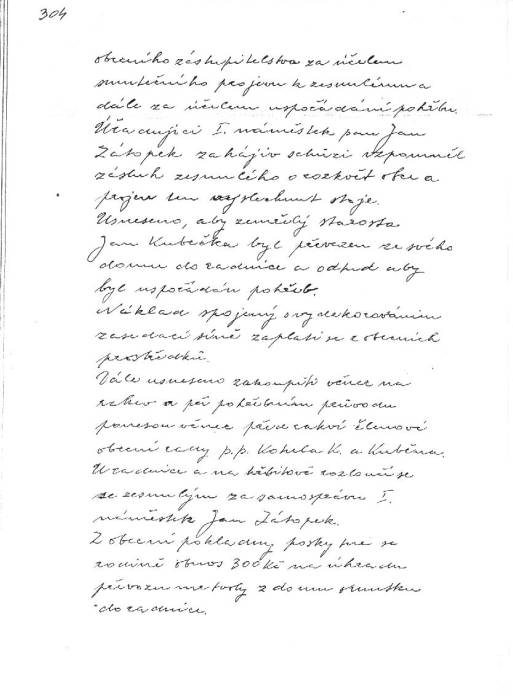 304
obecního zastupitelstva za účelem
smutečního projevu k zesnulému a
dále za účelem uspořádání pohřbu.
Úřadující I. náměstek pan Jan
Zátopek zahájiv schůzi vzpomněl
zásluh zesnulého o rozkvět obce a
projev ten vyslechnut stoje.
Usneseno, aby zemřelý starosta
Jan Kubečka byl převezen ze svého
domu do radnice a odtud aby
byl uspořádán pohřeb.
Náklad spojený s vydekorováním
zasedací síně zaplatí se z obecních
prostředků.
Dále usneseno zakoupiti věnec na
rakev a při pohřebním průvodu
ponesou věnec pravé členové
obecní rady p.p. Kohula K. a Kuběna.
U radnice a na hřbitově rozloučí se
se zesnulým za samosprávu I.
náměstek Jan Zátopek.
Z obecní pokladny poskytne se
rodině obnos 300 Kč na úhradu
převozu mrtvoly z domu smutku
do radnice.